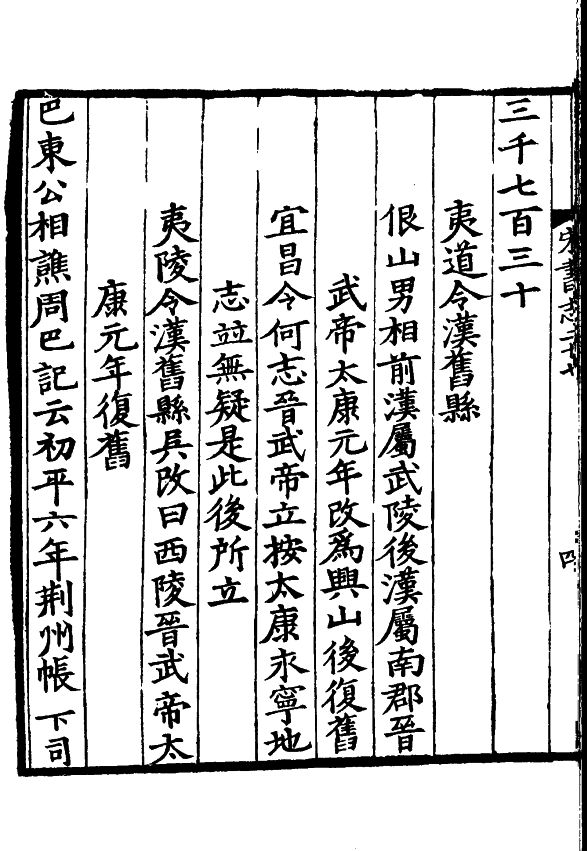 宋書志二十七
四
三千七百三十
夷道令漢舊縣
佷山男相前漢屬武陵後漢屬南郡晉
武帝太康元年改爲興山後復舊
宜昌令何志晉武帝立按太康永寧地
志並無疑是此後所立
夷陵令漢舊縣吳改曰西陵晉武帝太
康元年復舊
巴東公相譙周巴記云初平六年荆州帳下司